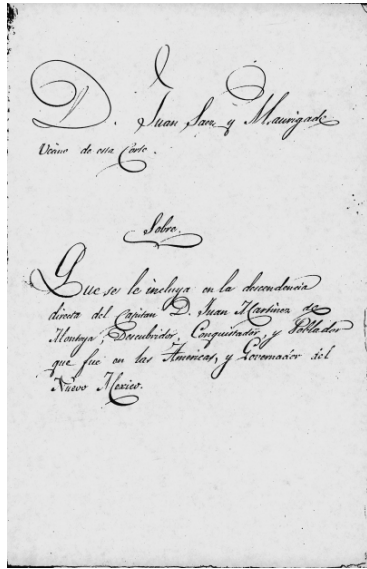 D. Juan Saez y Maurigade
Vecino de esta Corte.
Sobre.
Que se le incluya en la descendencia
directa del Capitan D. Juan Martinez de
Montoya, Descubridor, Conquistador, y Poblador
que fue en las Americas, y Governador del
Nuevo Mexico.